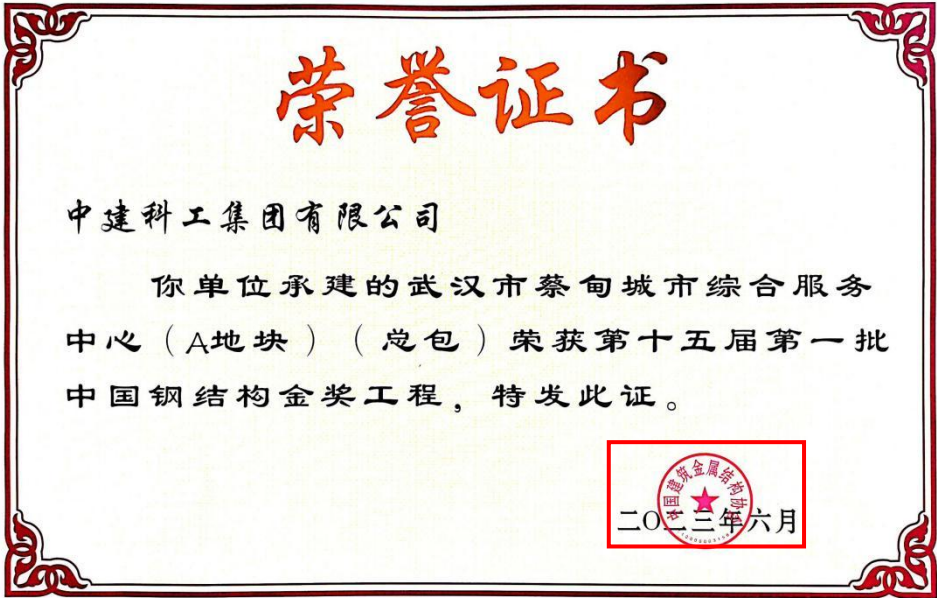 荣誉证书
中建科工集团有限公司
你单位承建的武汉市蔡甸城市综合服务
中心（A地块）（总包）荣获第十五届第一批
中国钢结构金奖工程，特发此证。
中国建筑金属结构协会
二〇二三年六月